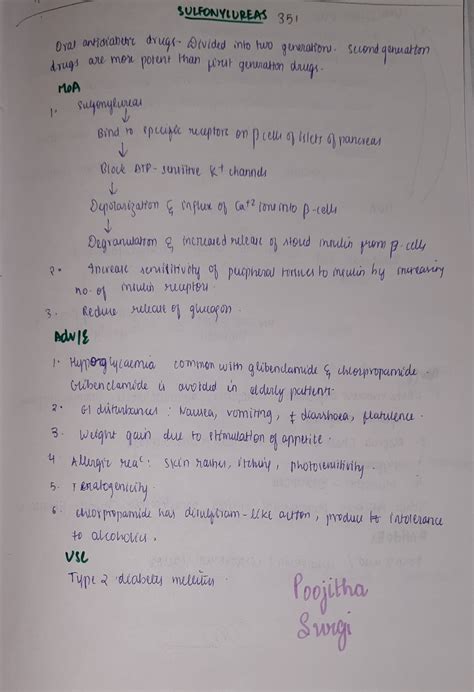 SULFONYLUREAS 351
Oral antidiabetic drugs - Divided into two generations. Second generation
drugs are more potent than first generation drugs.
MOA
1. Sulfonylureas
↓
Bind to specific receptors on β cells of islets of pancreas
↓
Block ATP-sensitive K+ channels
↓
Depolarization & influx of Ca+2 ions into β-cells
↓
Degranulation & increased release of stored insulin from β-cells
2. Increase sensitivity of peripheral tissues to insulin by increasing
no. of insulin receptors.
3. Reduce release of glucagon.
ADV/E
1. Hypoglycaemia common with glibenclamide & chlorpropamide.
Glibenclamide is avoided in elderly patients.
2. GI disturbances : Nausea, vomiting, diarrhoea, flatulence.
3. Weight gain due to stimulation of appetite.
4 Allergic reac: skin rashes, itching, photosensitivity.
5. Teratogenicity.
6. chlorpropamide has disulfiram-like action, produce intolerance
to alcoholics.
USE
Type 2 diabetes mellitus.
Poojitha
Surgi